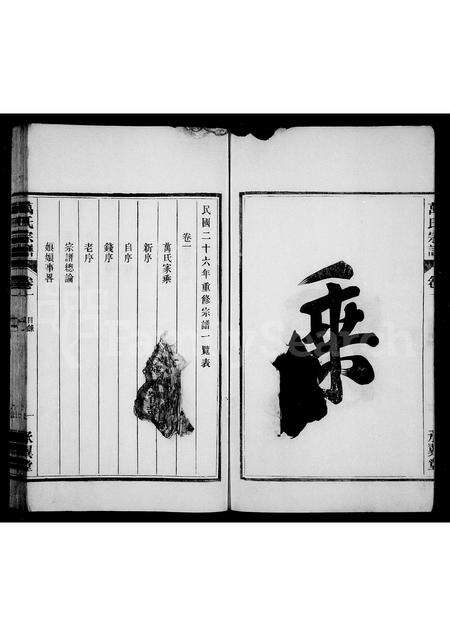 乘
萬氏宗譜
卷一
永巽堂
民國二十六年重修宗譜一覽表
卷一
萬氏家乘
新序
自序
錢序
老序
宗譜總論
娘娘事畧
萬氏宗譜
卷一
目錄
一
永巽堂